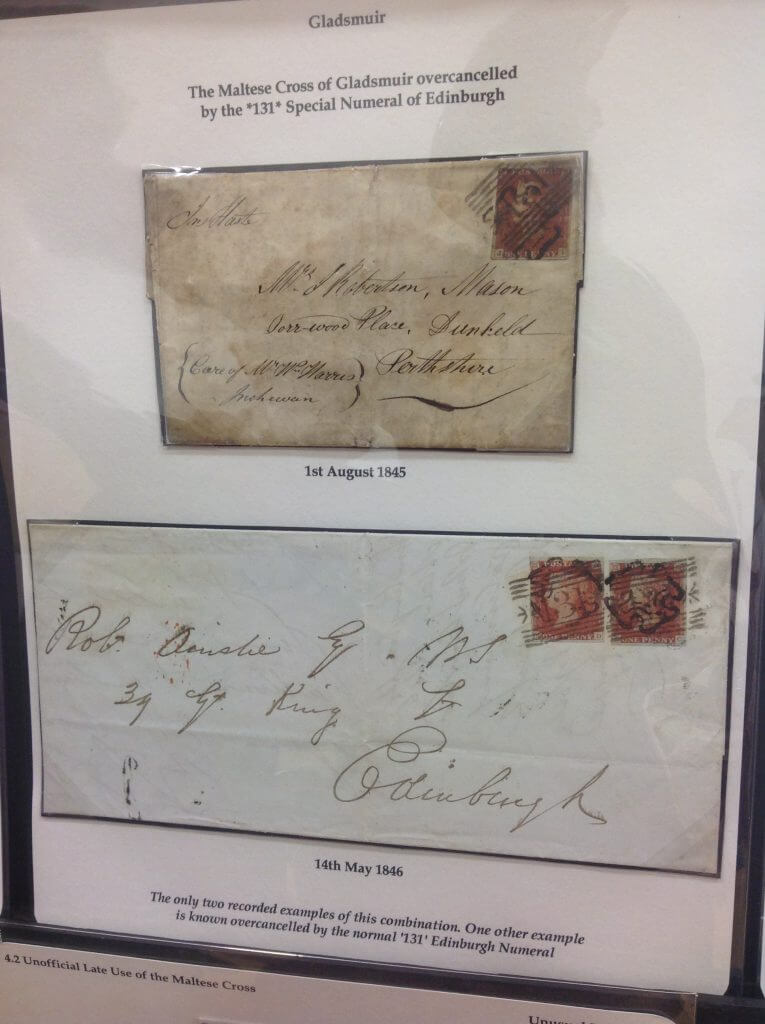 Gladsmuir
The Maltese Cross of Gladsmuir overcancelled
by the *131* Special Numeral of Edinburgh
In Haste
Mrs J Robertson, Mason
Place, Dunkeld
Perthshire
Care of Mr Wm
ONE PENNY
1st August 1845
POSTAGE
ONE PENNY
ONE PENNY
Robt Ainslie Esq WS
39 Gt King St
Edinburgh
14th May 1846
The only two recorded examples of this combination. One other example
is known overcancelled by the normal '131' Edinburgh Numeral
4.2 Unofficial Late Use of the Maltese Cross